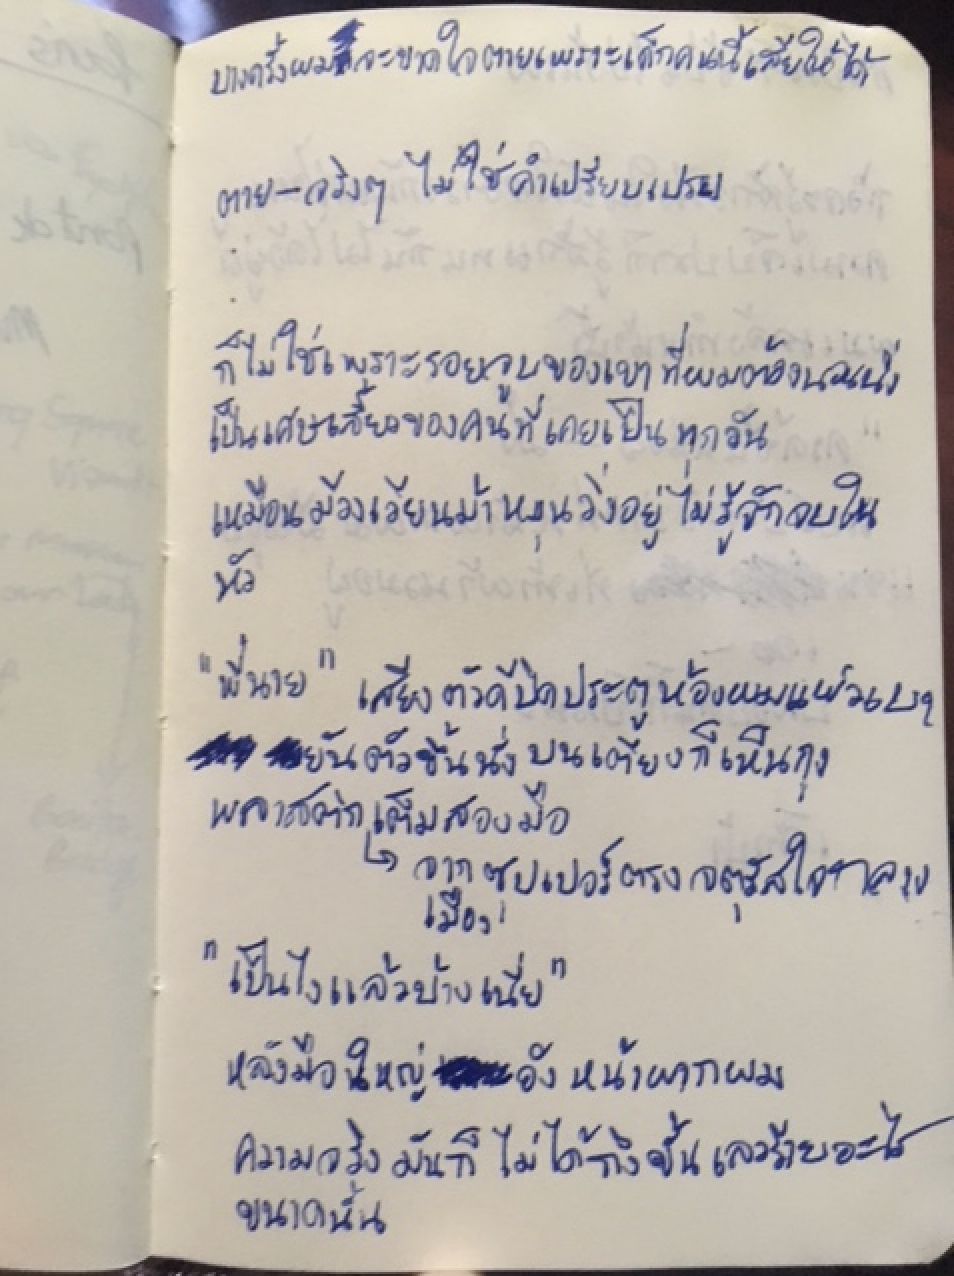 บางครั้งผมก็จะขาดใจตายเพราะเด็กคนนี้เสียให้ได้
ตาย-จริงๆ ไม่ใช่คำเปรียบเปรย
.
.
ก็ไม่ใช่เพราะรอยจูบของเขาที่ผมต้องนอนนิ่ง
เป็นเศษเสี้ยวของคนที่เคยเป็นทุกวัน
เหมือนมีวงเวียนม้าหมุนวิ่งอยู่ไม่รู้จักจบใน
หัว
"พี่นาย" เสียงตัวดีปิดประตูห้องผมแผ่วเบา
ยันตัวขึ้นนั่งบนเตียงก็เห็นถุง
พลาสติกเต็มสองมือ
↳ จากซุปเปอร์ตรงจตุรัสใจกลาง
เมือง
"เป็นไงแล้วบ้างเนี่ย"
หลังมือใหญ่ อังหน้าผากผม
ความจริงมันก็ไม่ได้ถึงขั้นเลวร้ายอะไร
ขนาดนั้น